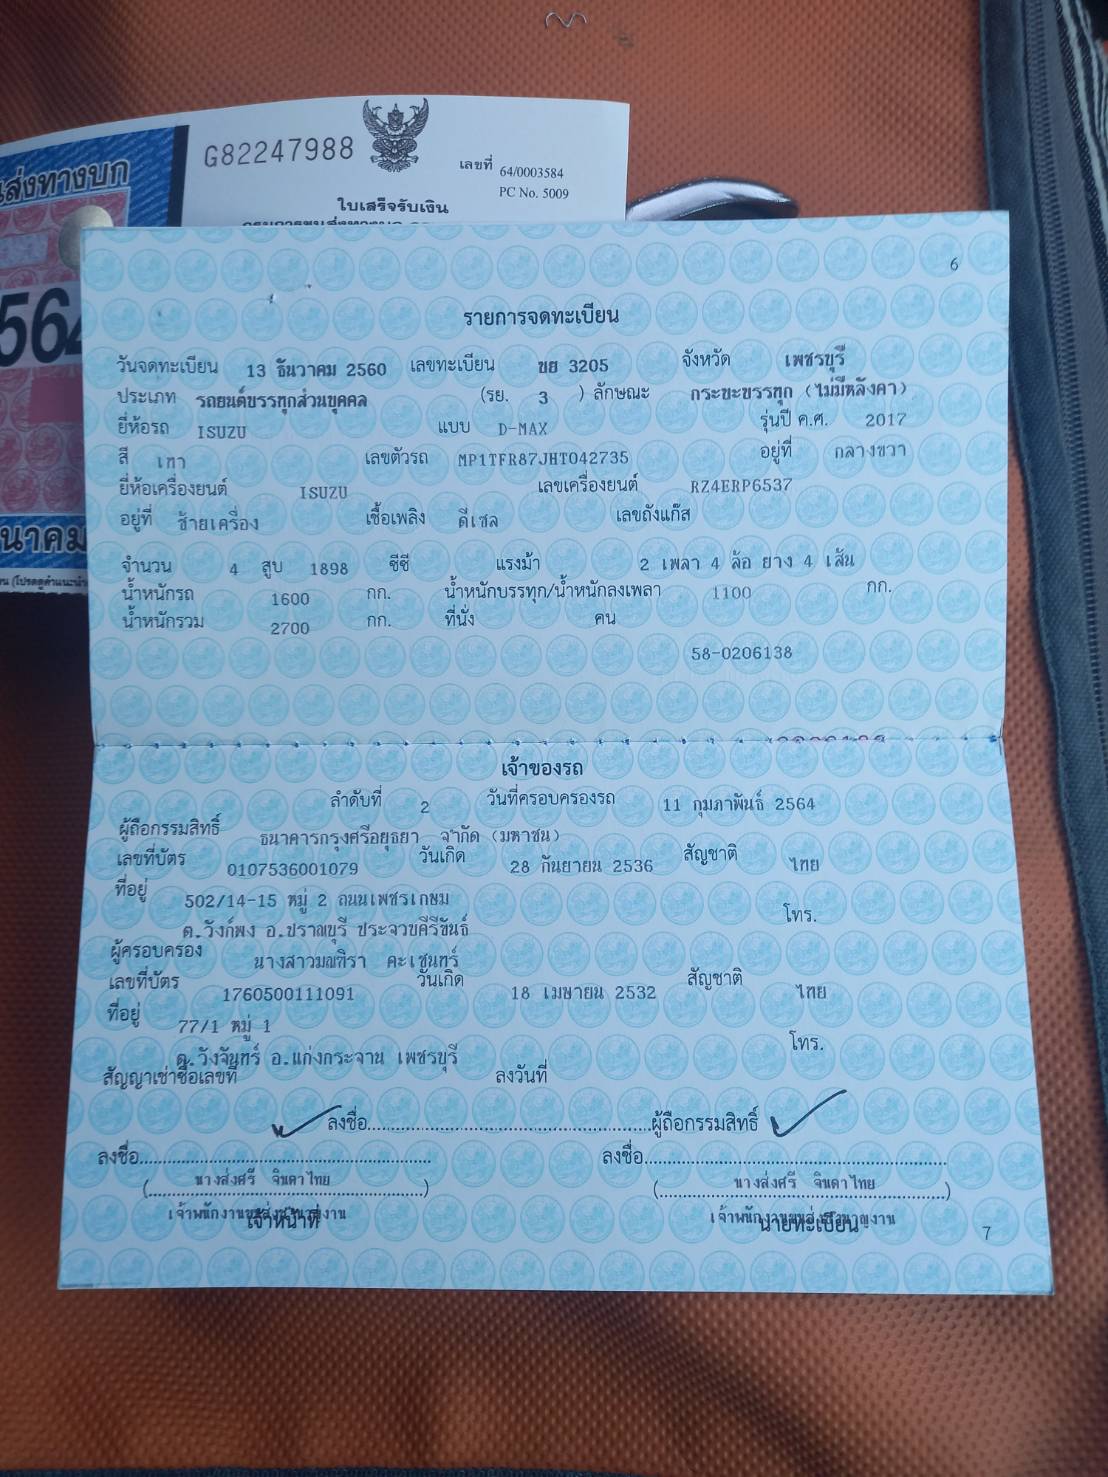 ส่งทางบก
G82247988
เลขที่ 64/0003584
PC No. 5009
ใบเสร็จรับเงิน
6
รายการจดทะเบียน
วันจดทะเบียน 13 ธันวาคม 2560 เลขทะเบียน ขย 3205 จังหวัด เพชรบุรี
ประเภท รถยนต์บรรทุกส่วนบุคคล (รย. 3 ) ลักษณะ กระบะบรรทุก (ไม่มีหลังคา)
ยี่ห้อรถ ISUZU แบบ D-MAX รุ่นปี ค.ศ. 2017
สี เทา เลขตัวรถ MP1TFR87JHT042735 อยู่ที่ กลางขวา
ยี่ห้อเครื่องยนต์ ISUZU เลขเครื่องยนต์ RZ4ERP6537
อยู่ที่ ซ้ายเครื่อง เชื้อเพลิง ดีเซล เลขถังแก๊ส
จำนวน 4 สูบ 1898 ซีซี แรงม้า 2 เพลา 4 ล้อ ยาง 4 เส้น
น้ำหนักรถ 1600 กก. น้ำหนักบรรทุก/น้ำหนักลงเพลา 1100 กก.
น้ำหนักรวม 2700 กก. ที่นั่ง คน
58-0206138
เจ้าของรถ
ลำดับที่ 2 วันที่ครอบครองรถ 11 กุมภาพันธ์ 2564
ผู้ถือกรรมสิทธิ์ ธนาคารกรุงศรีอยุธยา จำกัด (มหาชน)
เลขที่บัตร 0107536001079 วันเกิด 28 กันยายน 2536 สัญชาติ ไทย
ที่อยู่ 502/14-15 หมู่ 2 ถนนเพชรเกษม
ต.วังก์พง อ.ปราณบุรี ประจวบคีรีขันธ์ โทร.
ผู้ครอบครอง นางสาวมณฑิรา คะเชนทร์
เลขที่บัตร 1760500111091 วันเกิด 18 เมษายน 2532 สัญชาติ ไทย
ที่อยู่ 77/1 หมู่ 1
ต.วังจันทร์ อ.แก่งกระจาน เพชรบุรี โทร.
สัญญาเช่าซื้อเลขที่ ลงวันที่
ลงชื่อ ผู้ถือกรรมสิทธิ์
ลงชื่อ ลงชื่อ
(นางส่งศรี จินดาไทย) (นางส่งศรี จินดาไทย)
เจ้าพนักงานขนส่งชำนาญงาน เจ้าพนักงานขนส่งชำนาญงาน
เจ้าหน้าที่ นายทะเบียน
7